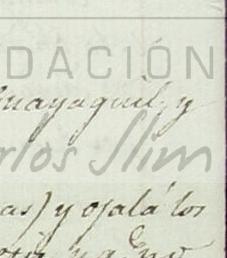 DACIÓN
uayaquil, y
rlos Slim
as) y ojalá los